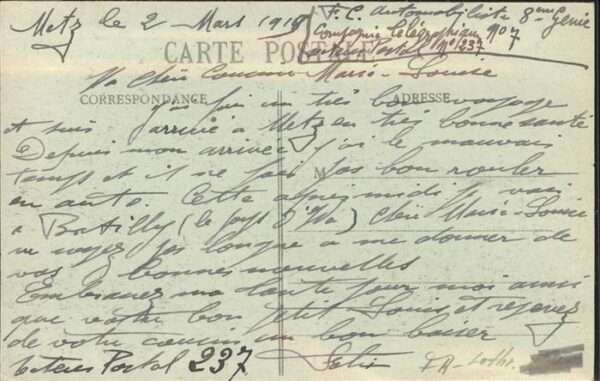 Metz le 2 Mars 1919
F. C. Automobiliste 8ème Génie
Compagnie Télégraphique No 7
Secteur Postal No 237
CARTE POSTALE
Ma Chère Cousine Marie-Louise
CORRESPONDANCE ADRESSE
J'ai fait un très bon voyage
et suis arrivé a Metz en très bonne santé
Depuis mon arrivée j'ai le mauvais
M
temps et il ne fait pas bon rouler
en auto. Cette après midi je vais
a Batilly (le pays d'Ida) Chère Marie-Louise
ne soyez pas longue a me donner de
vos bonnes nouvelles
Embrassez ma tante pour moi ainsi
que votre bon petit Louis et recevez
de votre cousin un bon baiser
Secteur Postal 237 Felix